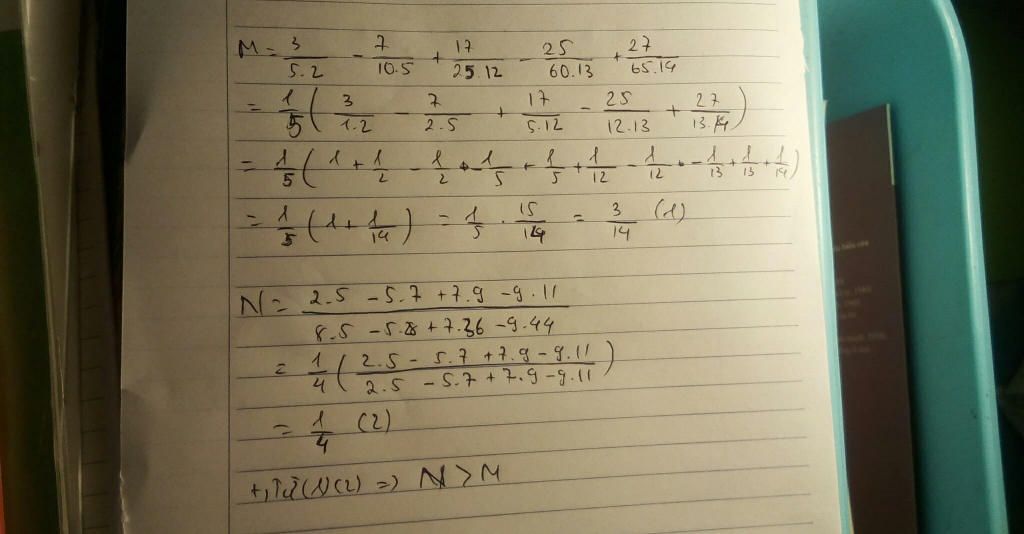 M = 3/5.2 - 7/10.5 + 17/25.12 - 25/60.13 + 27/65.14
= 1/5 ( 3/1.2 - 7/2.5 + 17/5.12 - 25/12.13 + 27/13.14 )
= 1/5 ( 1 + 1/2 - 1/2 - 1/5 + 1/5 + 1/12 - 1/12 - 1/13 + 1/13 + 1/14 )
= 1/5 ( 1 + 1/14 ) = 1/5 . 15/14 = 3/14 (1)
N = 2.5 - 5.7 + 7.9 - 9.11 / 8.5 - 5.28 + 7.36 - 9.44
= 1/4 ( 2.5 - 5.7 + 7.9 - 9.11 / 2.5 - 5.7 + 7.9 - 9.11 )
= 1/4 (2)
+, Từ (1) (2) => N > M